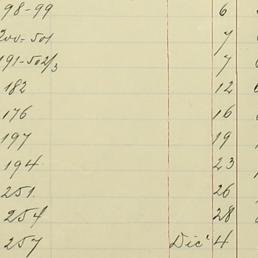 98-99 6
200-501 7
191-502/3 7
182 12
176 16
197 19
194 23
251 26
254 28
257 Dic 4